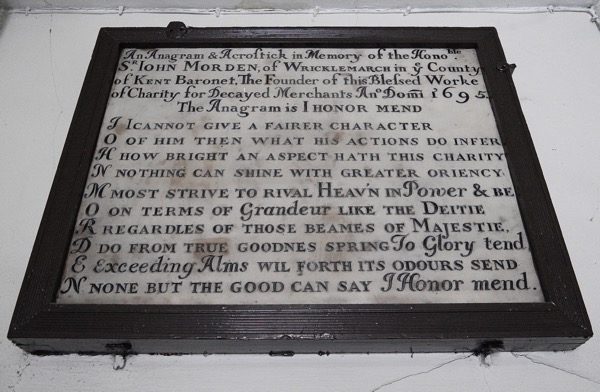 An Anagram & Acrostick in Memory of the Hono.ble
Sr. IOHN MORDEN, of WRICKLEMARCH in ye County
of KENT Baronet, The Founder of this Blessed Worke
of Charity for Decayed Merchants Ano. Dom̄ 1695.
The Anagram is I HONOR MEND
I I CANNOT GIVE A FAIRER CHARACTER
O OF HIM THEN WHAT HIS ACTIONS DO INFER
H HOW BRIGHT AN ASPECT HATH THIS CHARITY
N NOTHING CAN SHINE WITH GREATER ORIENCY.
M MOST STRIVE TO RIVAL HEAV'N IN Power & BE
O ON TERMS OF Grandeur LIKE THE DEITIE
R REGARDLES OF THOSE BEAMES OF MAJESTIE,
D DO FROM TRUE GOODNES SPRING To Glory tend,
E Exceeding Alms WIL FORTH ITS ODOURS SEND
N NONE BUT THE GOOD CAN SAY I Honor mend.